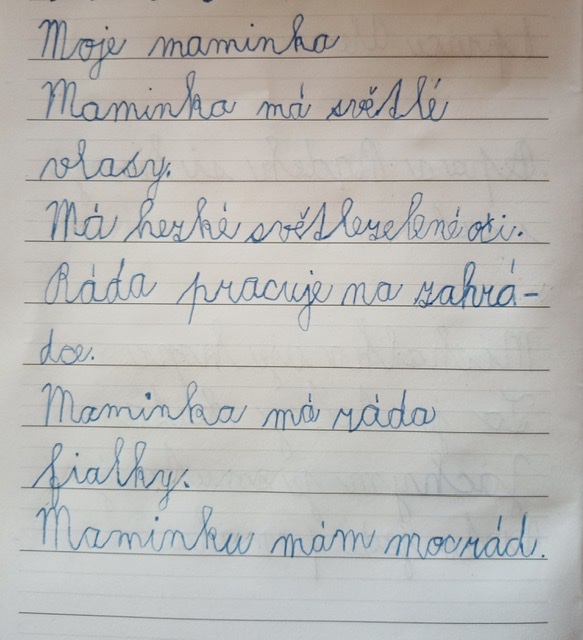 Moje maminka
Maminka má světlé
vlasy.
Má hezké světlezelené oči.
Ráda pracuje na zahrá-
dce.
Maminka má ráda
fialky.
Maminku mám moc rád.